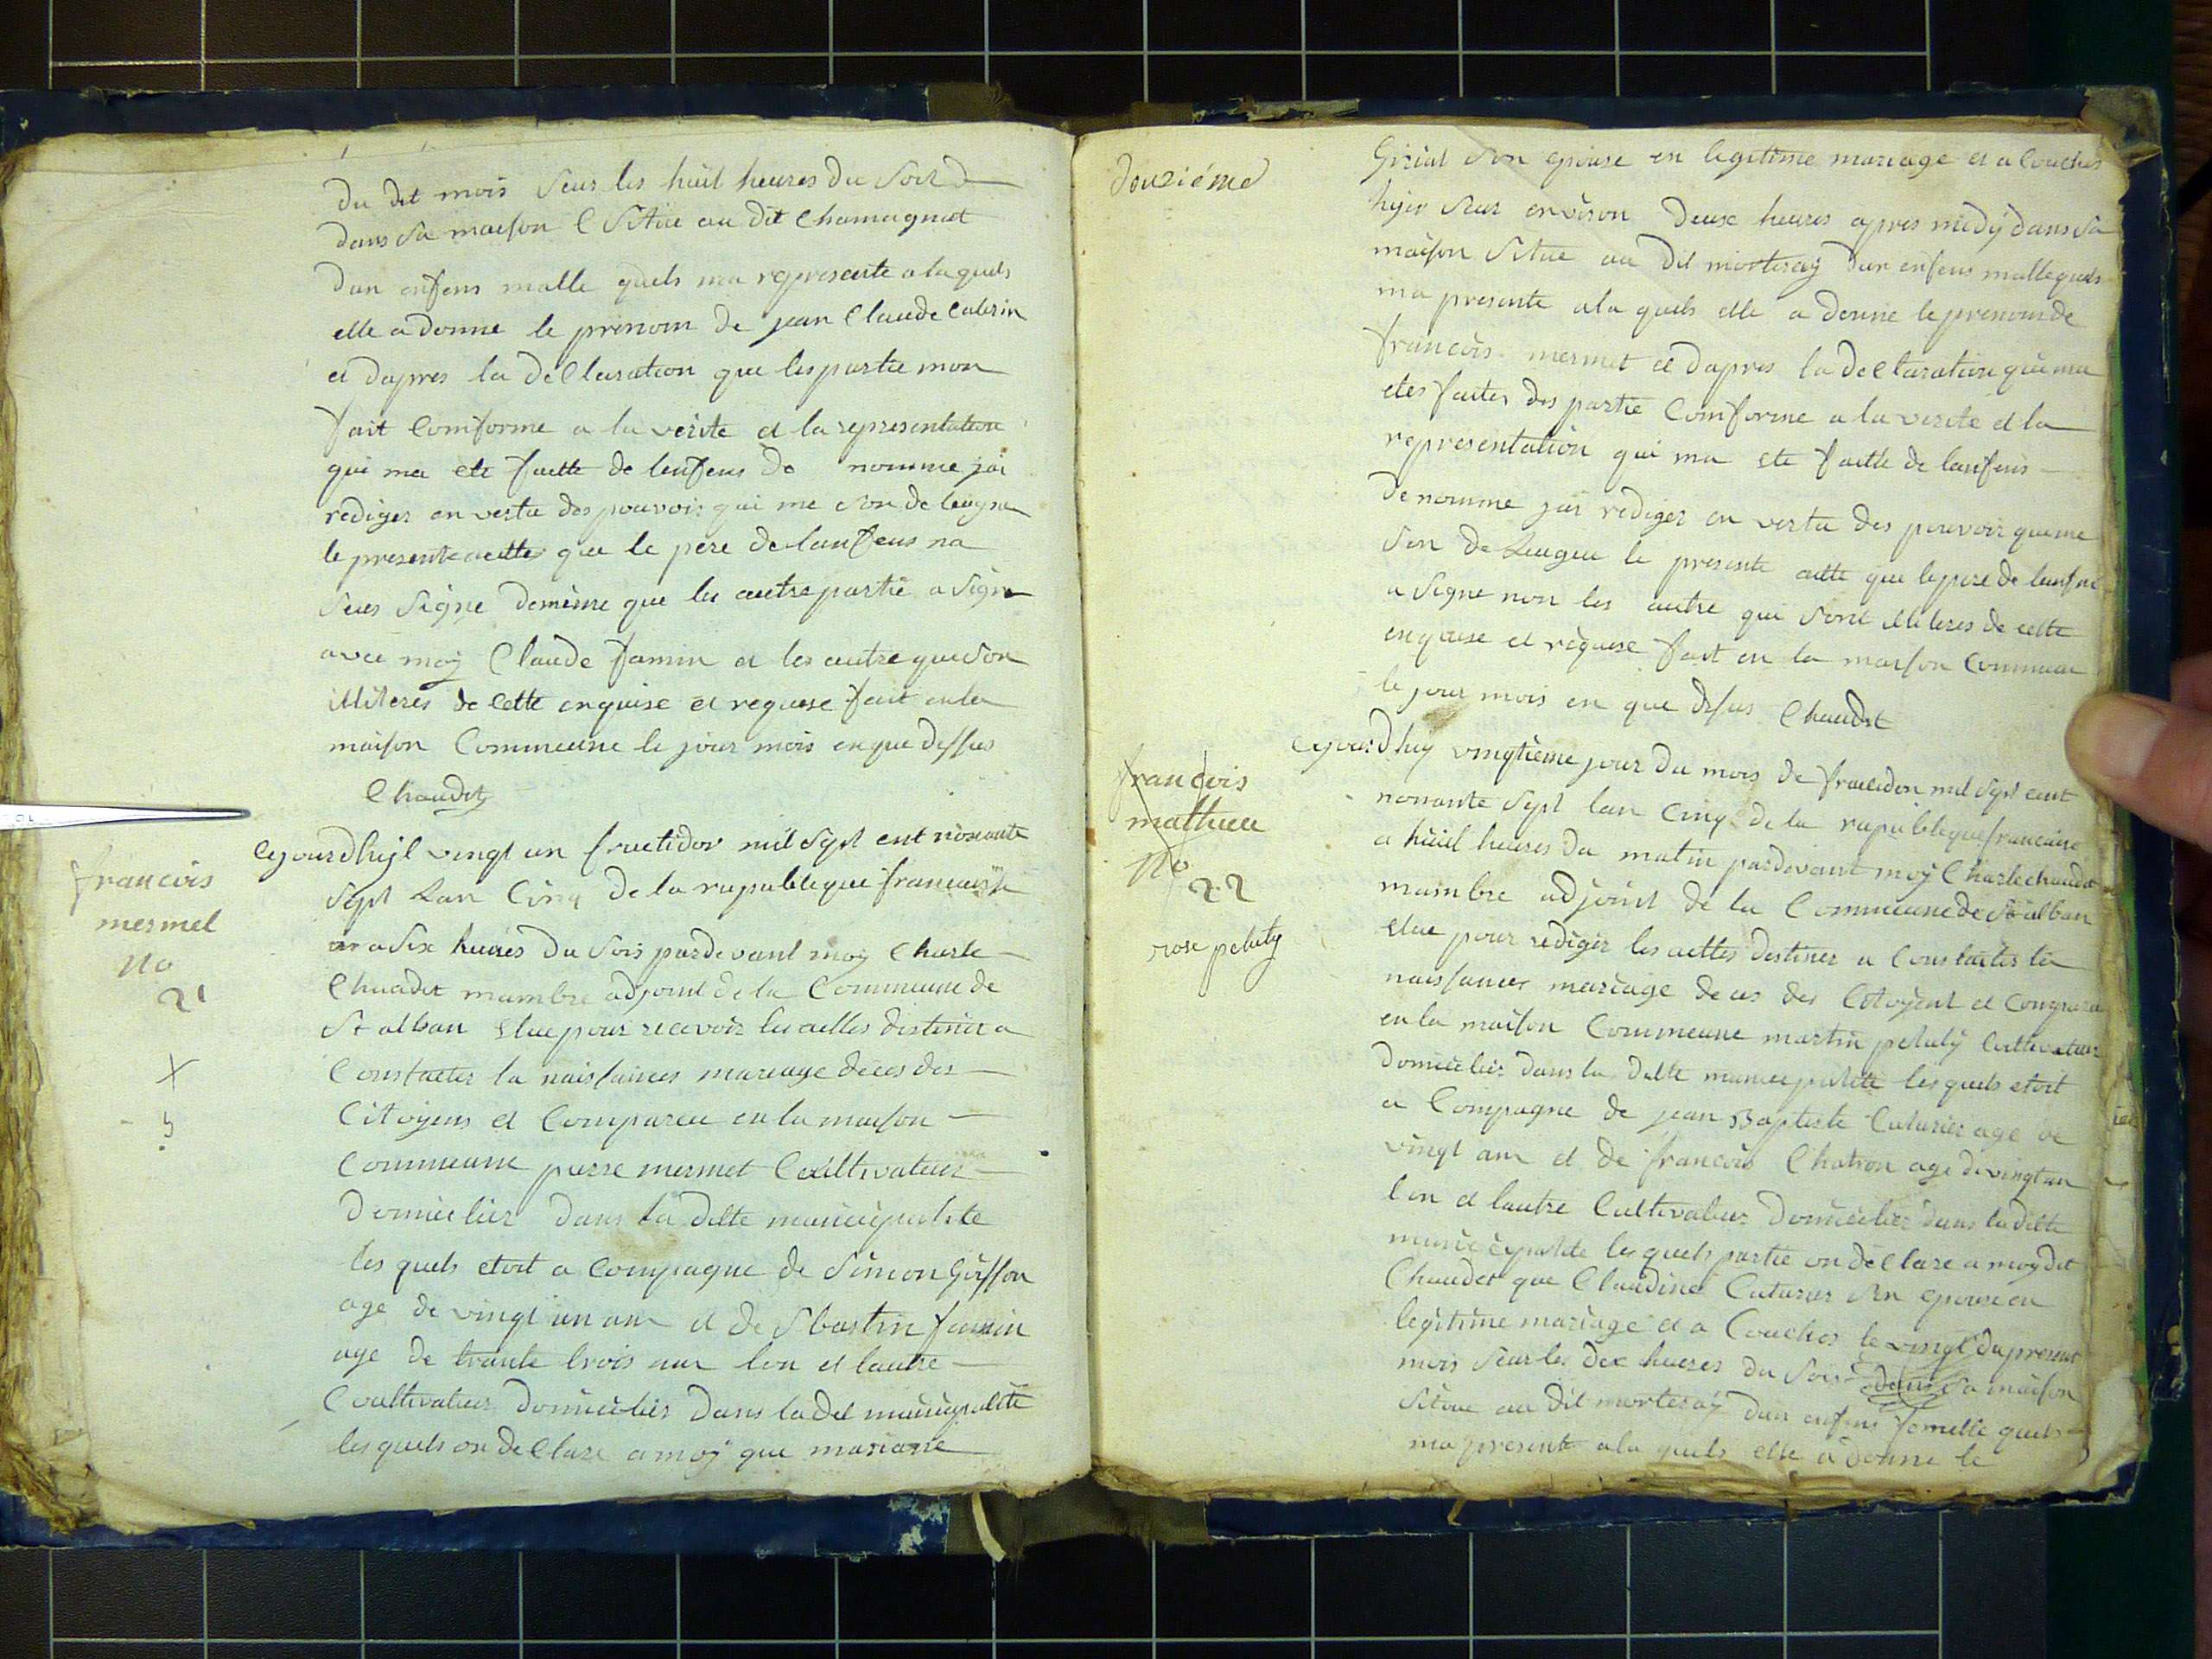 du dit mois seur les huit heures du soir
dans sa maison sitiue au dit chamagnat
dun enfens malle quels ma represente a la quels
elle a donne le prenom de jean Claude
et dapres la declaration que les partie mon
fait Comforme a la verite et la representation
qui ma ete faitte de lenfens de nomme jai
rediger en vertu des pouvoir qui me son
le presente acitte que le pere de lanfens na
seus signe demême que les autre partie a signe
avec moy Claude famin et les autre que son
illiteres de Cette enquise et requise fait en la
maison Commeune le jour mois en que dessus
Chaudet
francois
mermet
No
21
X
5
Cejourdhuy vingt un fructidor mil sept cent nonante
sept Lan Cinq de la rapublique francaise
a six heures du soir pardevant moy Charle
Chaudet mambre adjoint de la Commeune de
St alban elue pour recevoir les acttes destiner a
Constatter la naissances mareage deces des
Citoyens et Compareu en la maison
Commeune pierre mermet Coultivateur
domicilier dans la ditte municipalite
les quels etoit a Compagne de simon
age de vingt un an et de sbastin famin
age de trante trois an lon et lautre
Coultivateur domicilier dans la dit municipalite
les quels on declare a moy que mariane
douziéme
son epouse en legitime mariage et a Couches
hyer seur environ deux heures apres midy dans sa
maison situe au dit morteray dun enfens malle quels
ma presente a la quels elle a donne le prenom de
francois mermet et dapres la declaration qui ma
etes faites des partie Comforme a la verite et la
representation qui ma ete faitte de lanfens
de nomme jai rediger en vertu des pouvoir que me
son le presente actte que le pere de lenfens
a signe non les autre qui sont illiteres de cette
enquise et requise fait en la maison Commeune
le jour mois en que desus Chaudet
francois
mathieu
No
22
rose peluty
Cejourdhuy vingtieme jour du mois de mil sept cent
nonante sept lan Cinq de la rapublique francaise
a huiit heures du matin pardevant moy Charle chaudet
mambre adjoint de la Commeune de St alban
elue pour rediger les acttes destiner a Constatter la
naissances mariage deces des Citoyent et Comparu
en la maison Commeune martin peluty Cultivateur
domicilier dans la ditte municipalite les quels etoit
a Compagne de jean Baptiste Cuturier age de
vingt an et de francois Chatron age de vingt an
lon et lautre Cultivateur domicilier dans la ditte
municipalite les quels partie on declare a moy dit
Chaudet que Claudine Cuturier son epouse en
legitime mariage et a Couches le vingt du present
mois seur les dix heures du soir dans sa maison
sitiue au dit morteray dun enfens femelle quels
ma presente a la quels elle a donne le